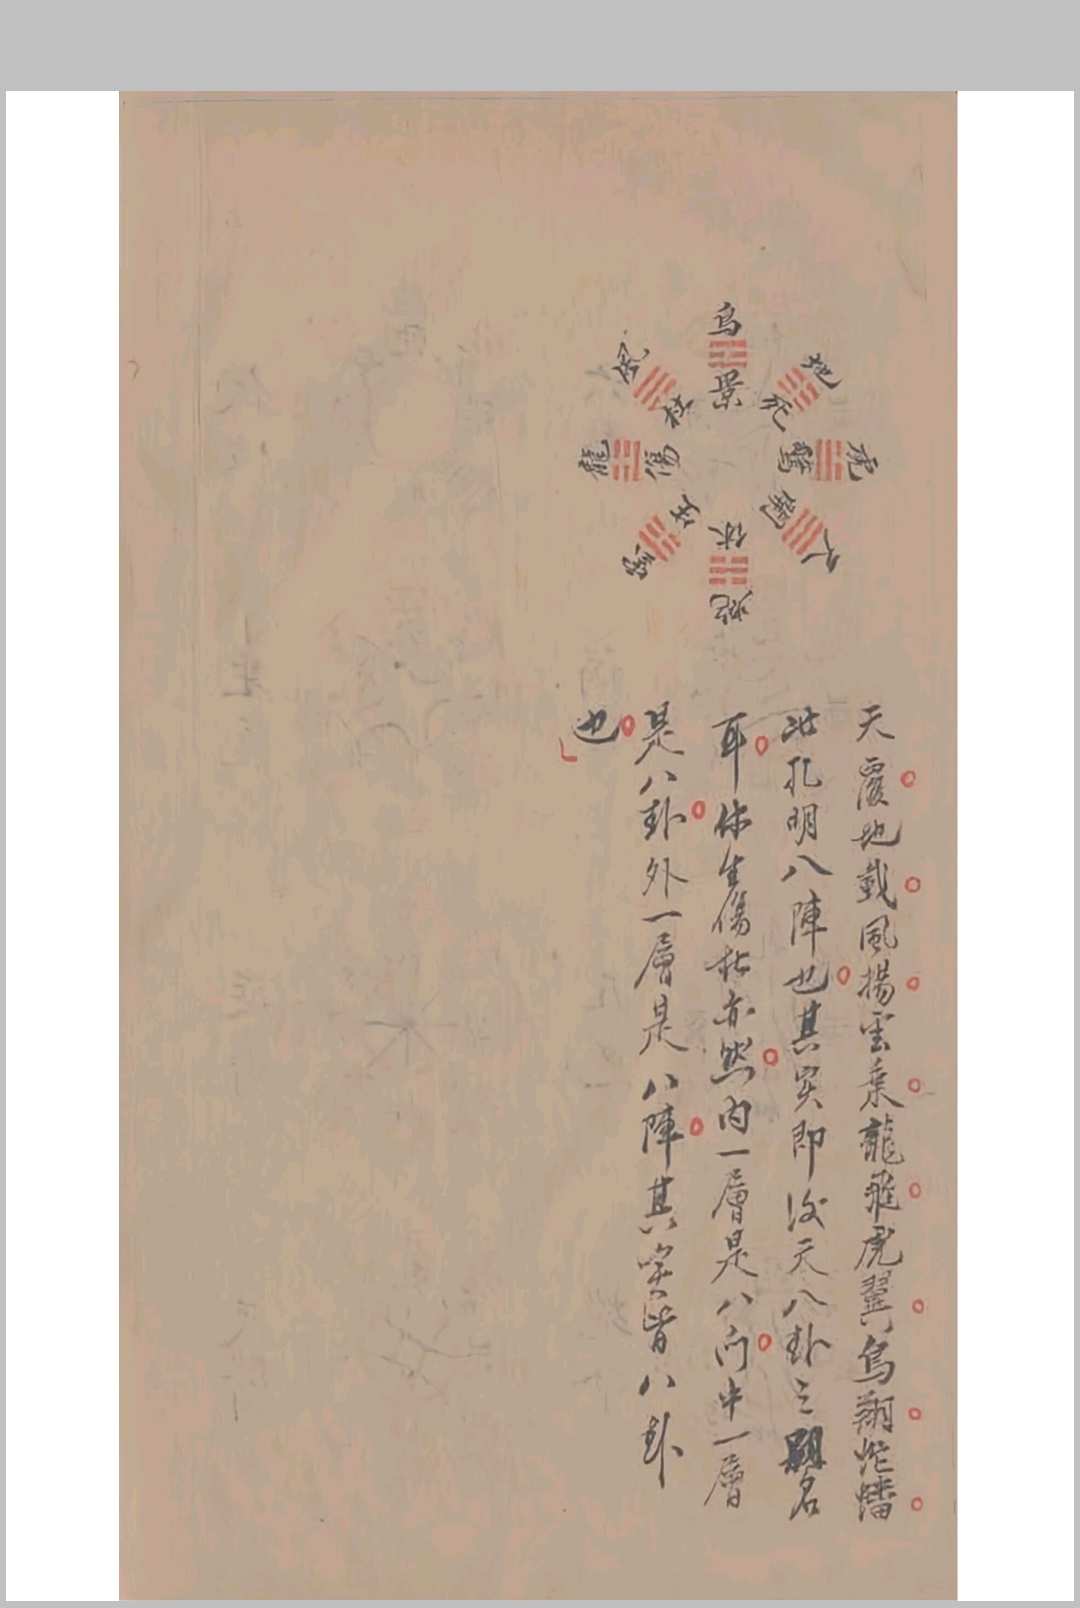 鸟
景
地
死
虎
驚
天
開
蛇
休
雲
生
龍
傷
風
杜
天覆地載風揚雲乗龍飛虎翼鸟翔蛇蟠
此孔明八陣也其实即後天八卦之名
耳休生傷杜亦然内一層是八门中一層
是八卦外一層是八陣其实皆八卦
也